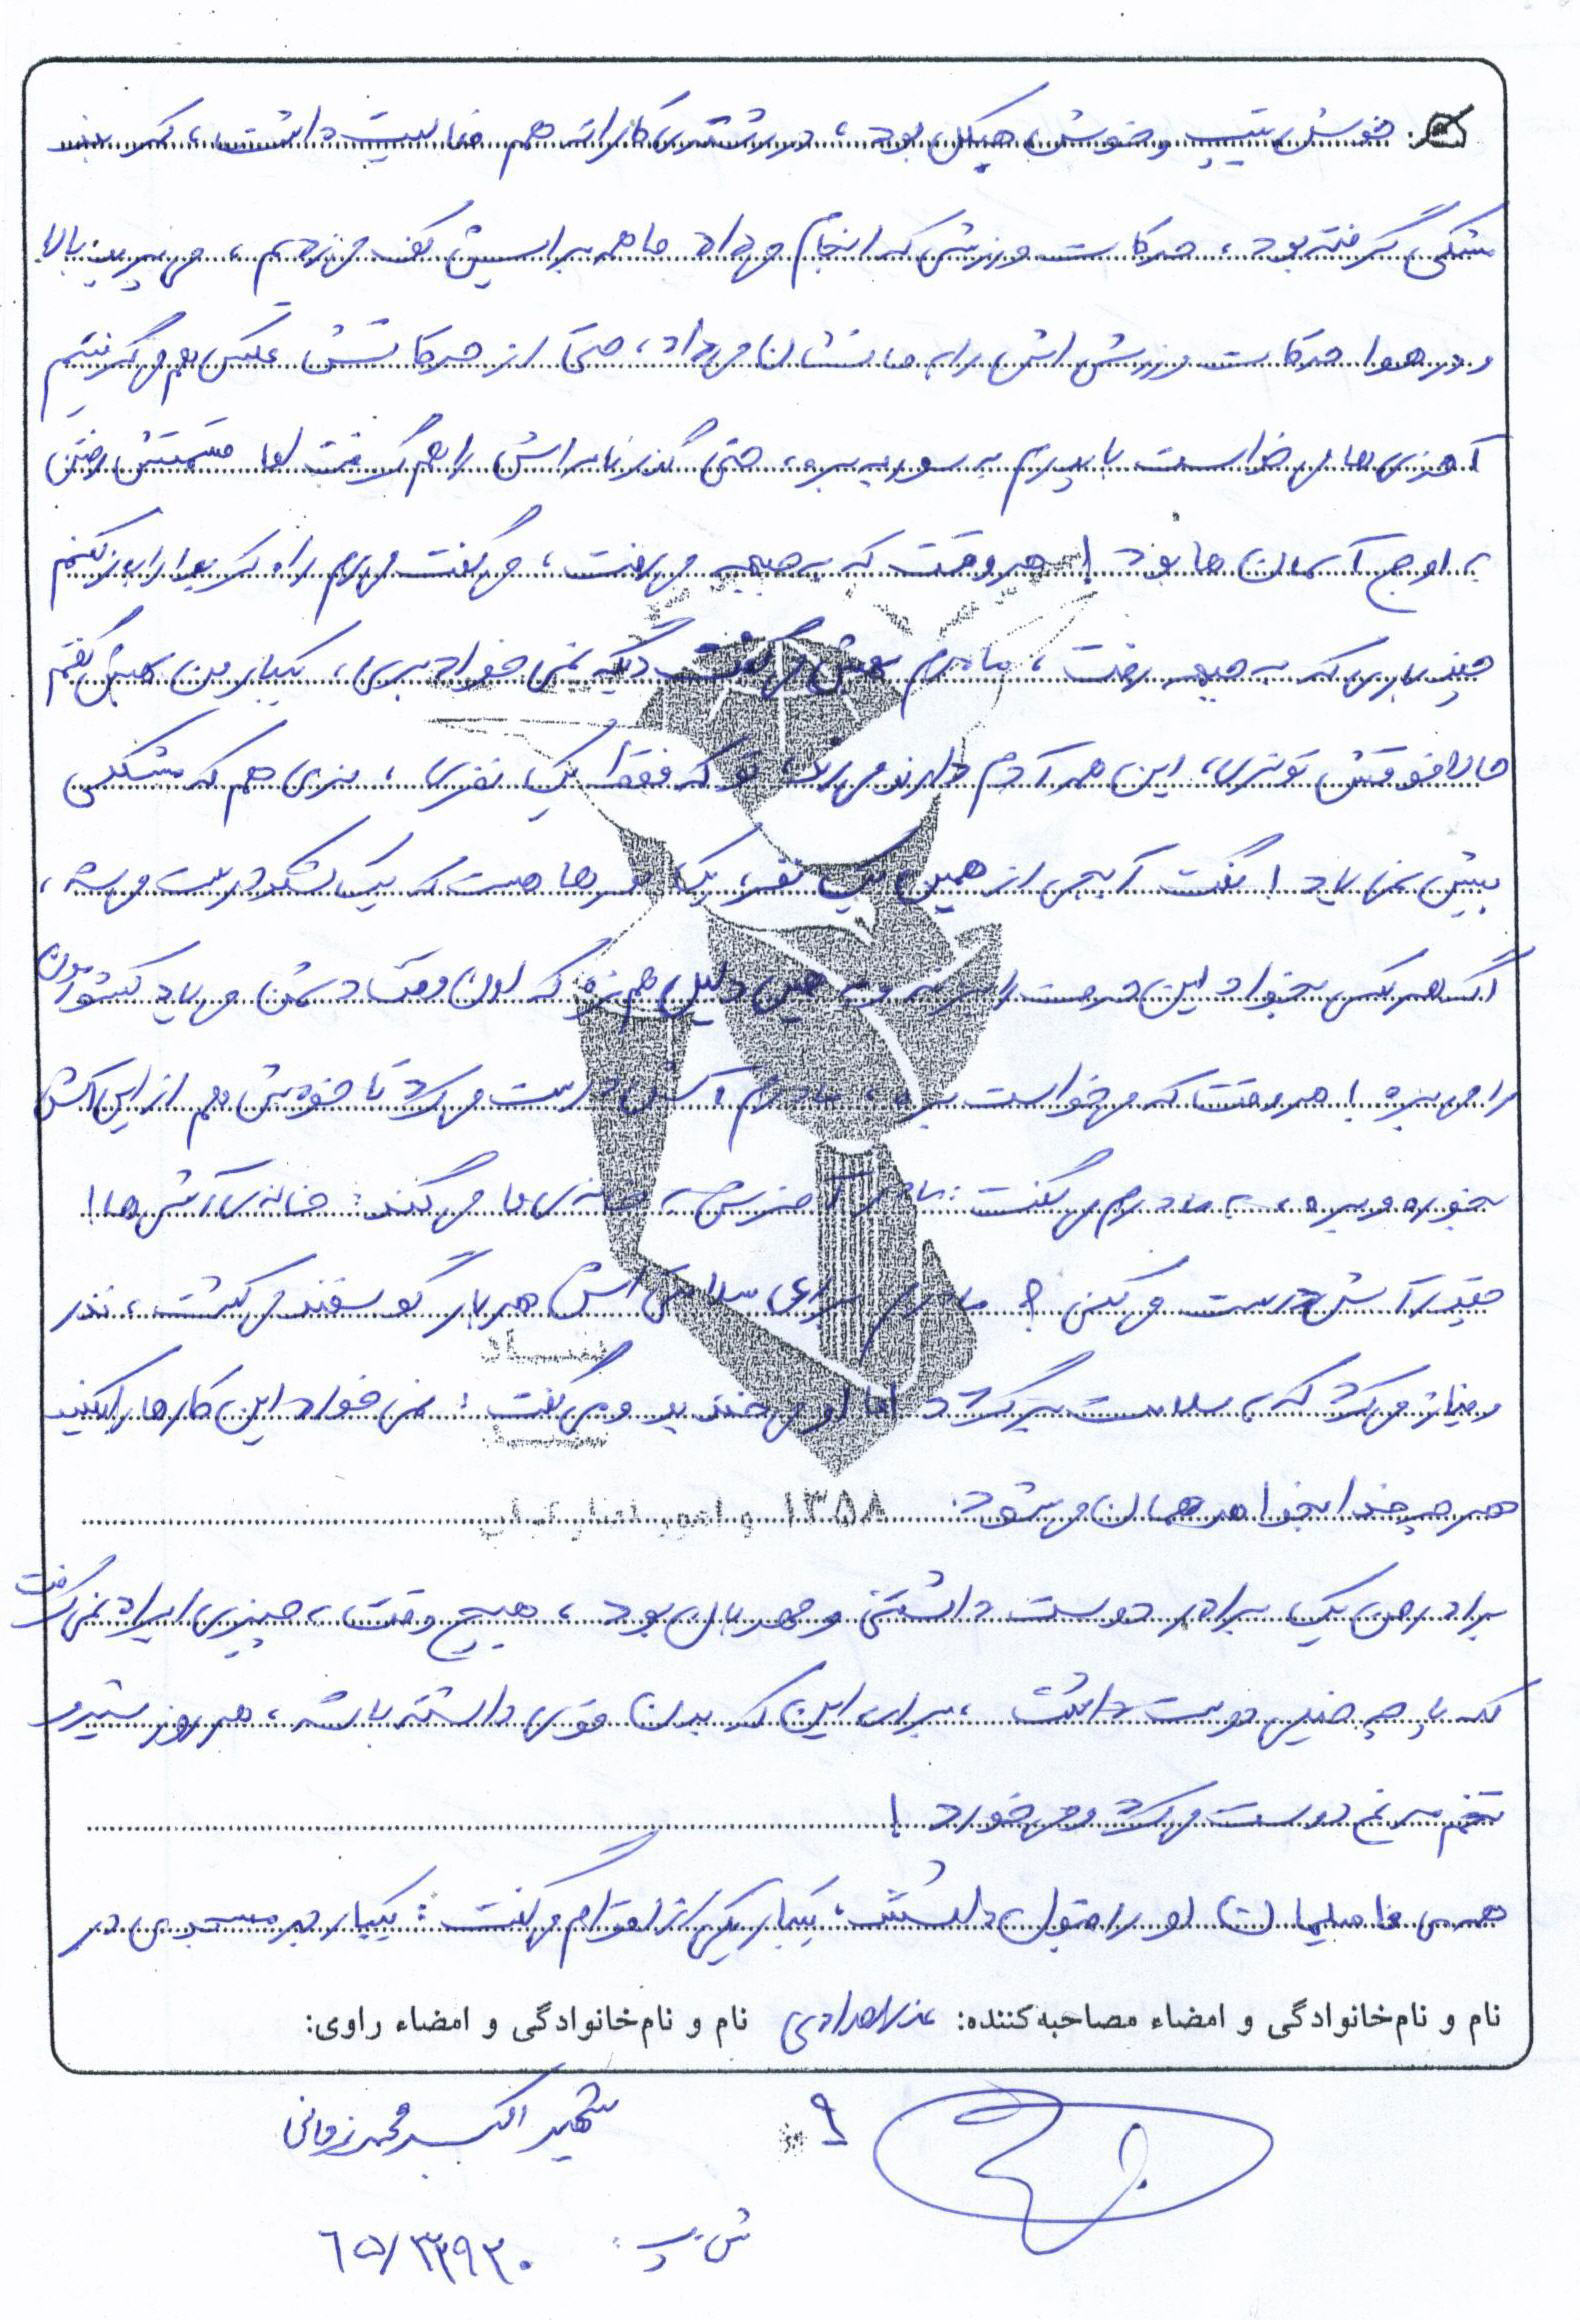 خوش تیپ و خوش هیکل بود، در رشته‌ی کاراته هم فعالیت داشت، کمربند
مشکی گرفته بود، حرکات ورزشی که انجام می‌داد ما هم براش کف می‌زدیم، می‌پرید بالا
و در هوا حرکات ورزشی‌اش را به ما نشان می‌داد، حتی از حرکاتش عکس هم می‌گرفتیم
آخری‌ها می‌خواست با پدرم به سوریه بره، حتی گذرنامه‌اش را هم گرفت اما قسمتش رفتن
به اوج آسمان‌ها بود! هر وقت که به جبهه می‌رفت، می‌گفت می‌رم راه کربلا را باز کنم
چند باری که به جبهه رفت، مادرم بهش می‌گفت دیگه نمی‌خواد بری، یکبار من بهش گفتم
حالا فوقش تو نری، این همه آدم دارند می‌رند، تو که فقط یک نفری، نری هم که مشکلی
پیش نمی‌یاد! گفت آبجی از همین یک نفر، یک نفرها هست که یک لشکر درست میشه،
اگه هر کس بخواد این حرف را بزنه و به همین دلیل هم نره که اون وقت دشمن می‌یاد کشورمون
را می‌بره! هر وقت که می‌خواست بره، مادرم آش درست می‌کرد تا خودش هم از این آش
بخوره و بره، به مادرم می‌گفت: مادر آخرش به خانه‌ی ما می‌گند: خانه‌ی آشی‌ها!
چقدر آش درست می‌کنی؟ مادرم برای سلامتی‌اش هر بار گوسفند می‌کشت، نذر
و نیاز می‌کرد که به سلامت برگردد اما او می‌خندید و می‌گفت: نمی‌خواد این کارها را بکنید
هر چه خدا بخواهد همان می‌شود.
۱۳۵۸
برادر من یک برادر دوست داشتنی و مهربان بود، هیچ وقت چیزی ایراد نمی‌گرفت
کله پاچه خیلی دوست داشت، برای این که بدن قوی داشته باشه، هر روز شیر و
تخم مرغ درست می‌کرد و می‌خورد!
همه‌ی فامیلمان او را قبول داشتند، یکبار یکی از اقوام می‌گفت: یکبار در مسجدی در
نام و نام‌خانوادگی و امضاء مصاحبه‌کننده: نام و نام‌خانوادگی و امضاء راوی:
۹
شهید اکبر محمدزمانی
ش پ: ٦٥/٣٣٩٣٠